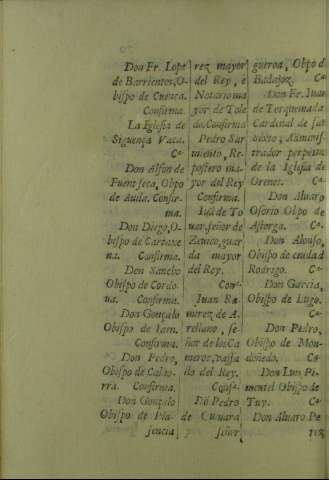 Don Fr. Lope
de Barrientos, O-
bispo de Cuenca.
Confirma.
La Iglesia de
Siguença Vaca.
Cª
Don Alfon de
Fuenseca, Obpo
de Auila. Confir-
ma.
Don Diego, O-
bispo de Cartaxe
na. Confirma.
Don Sancho
Obispo de Cordo
ua. Confirma.
Don Gonçalo
Obispo de Iaen.
Confirma.
Don Pedro,
Obispo de Calao-
rra. Confirma.
Don Gonçalo
Obispo de Pla-
sencia
rez mayor
del Rey, è
Notario ma
yor de Tole
do. Confirma
Pedro Sar
miento, Re-
postero ma-
yor del Rey
Confirma.
Iuã de To
uar, señor de
guar
da mayor
del Rey.
Conª
Iuan Ra
mirez de A-
rellano, se-
ñor de los Ca
meros, vassa
llo del Rey.
Confª
Dõ Pedro
de
señor,
gueroa, Obpo d
Badajoz. Cª
Don Fr. Iuan
de Torquemada
Cardinal de san
sixto, Adminis-
trador perpetuo
de la Iglesia de
Orenes. Cª
Don Aluaro
Osorio Obpo de
Astorga. Cª
Don Alonso,
Obispo de ciudad
Rodrigo. Cª
Don Garcia,
Obispo de Lugo.
Cª
Don Pedro,
Obispo de Mon-
doñedo. Cª
Don Luis Pi-
mentel Obispo de
Tuy. Cª
Don Aluaro Pe